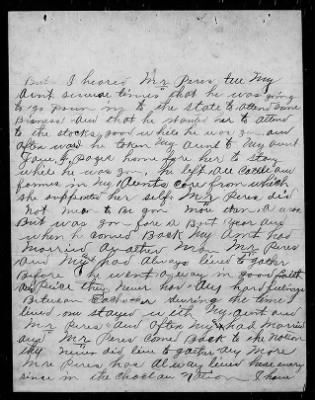 But I heared Mr Peres tell My
Aunt severse times that he was going
to go down in to the state to attend some
Bisness and that he wanted her to attend
to the stock good while he was gon and
after ward he taken My Aunt to My aunt
Jane J. Pages home fore her to stay
while he was gon, he left all Cattle and
formes in My Aunts care from which
she supported her self. Mr Peres did
not mear to be gon more then a
But was gon fore a But year and
when he comed Back My Aunt had
Married another Man. Mr Peres
and My had always lived to gather
Before he went away in good faith
and peice they never had any hard feelings
Between Each other during the time
lived one stayed with My aunt and
Mr Peres and after My had married
and Mr Peres comed Back to the Nation
they never did live to gather any More
Mr Peres has always lived here every
since in the Choctaw Nation I have